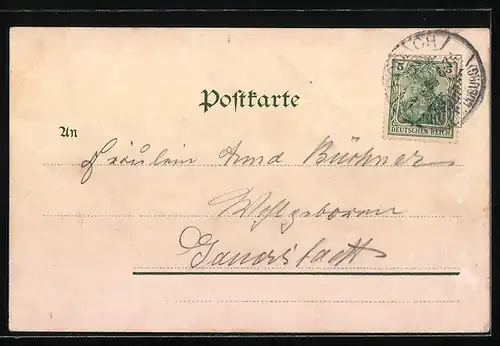 Postkarte
5
DEUTSCHES REICH
An
Fräulein Anna Büchner
Wohlgeboren